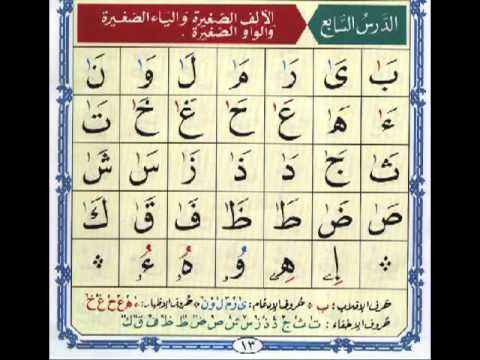 الدَّرسُ السَّابع
الألف الصغيرة والياء الصغيرة
والواو الصغيرة .
بٰ یٰ رٰ مٰ لٰ وٰ نٰ
ءٰ هٰ عٰ حٰ غٰ خٰ تٰ
ثٰ جٰ دٰ ذٰ زٰ سٰ شٰ
صٰ ضٰ طٰ ظٰ فٰ قٰ كٰ
إِۦ هِۦ وُۥ هُۥ ءُۥ
حرف الإقلاب: ب * حروف الإدغام: ی ر م ل و ن * حروف الإظهار: ء ه ع ح غ خ
حروف الإخفاء: ت ث ج د ذ ز س ش ص ض ط ظ ف ق ك
١٣